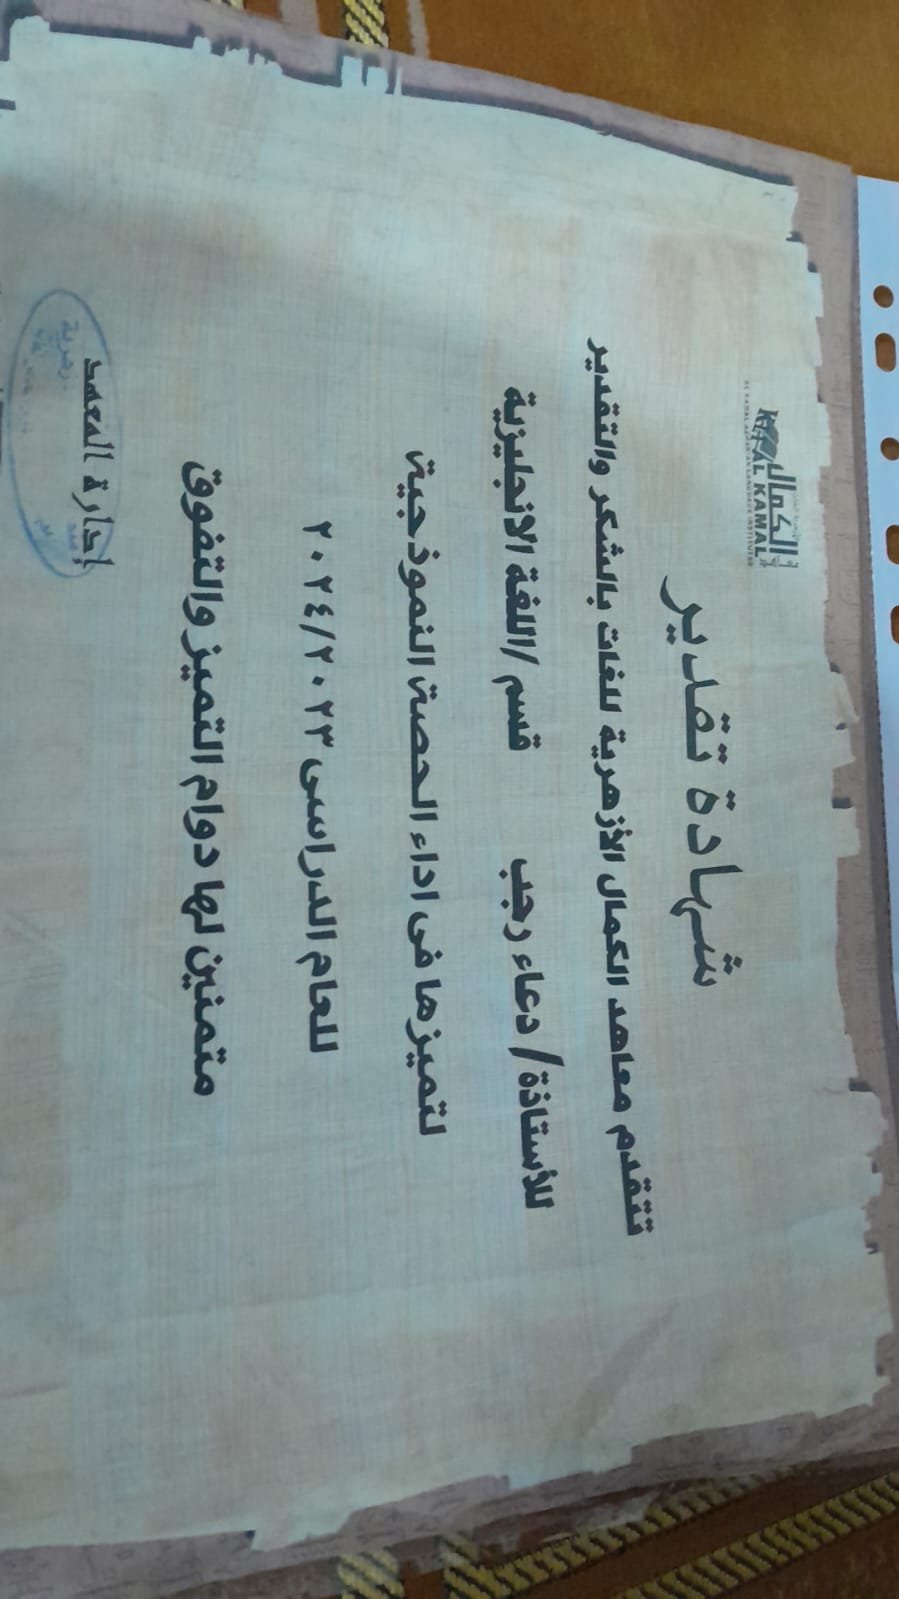 الكمال
AL KAMAL
شهادة تقدير
تتقدم معاهد الكمال الأزهرية للغات بالشكر والتقدير
للأستاذة / دعاء رجب قسم /اللغة الانجليزية
لتميزها فى اداء الحصة النموذجية
للعام الدراسى ٢٠٢٤/٢٠٢٣
متمنين لها دوام التميز والتفوق
إدارة المعهد